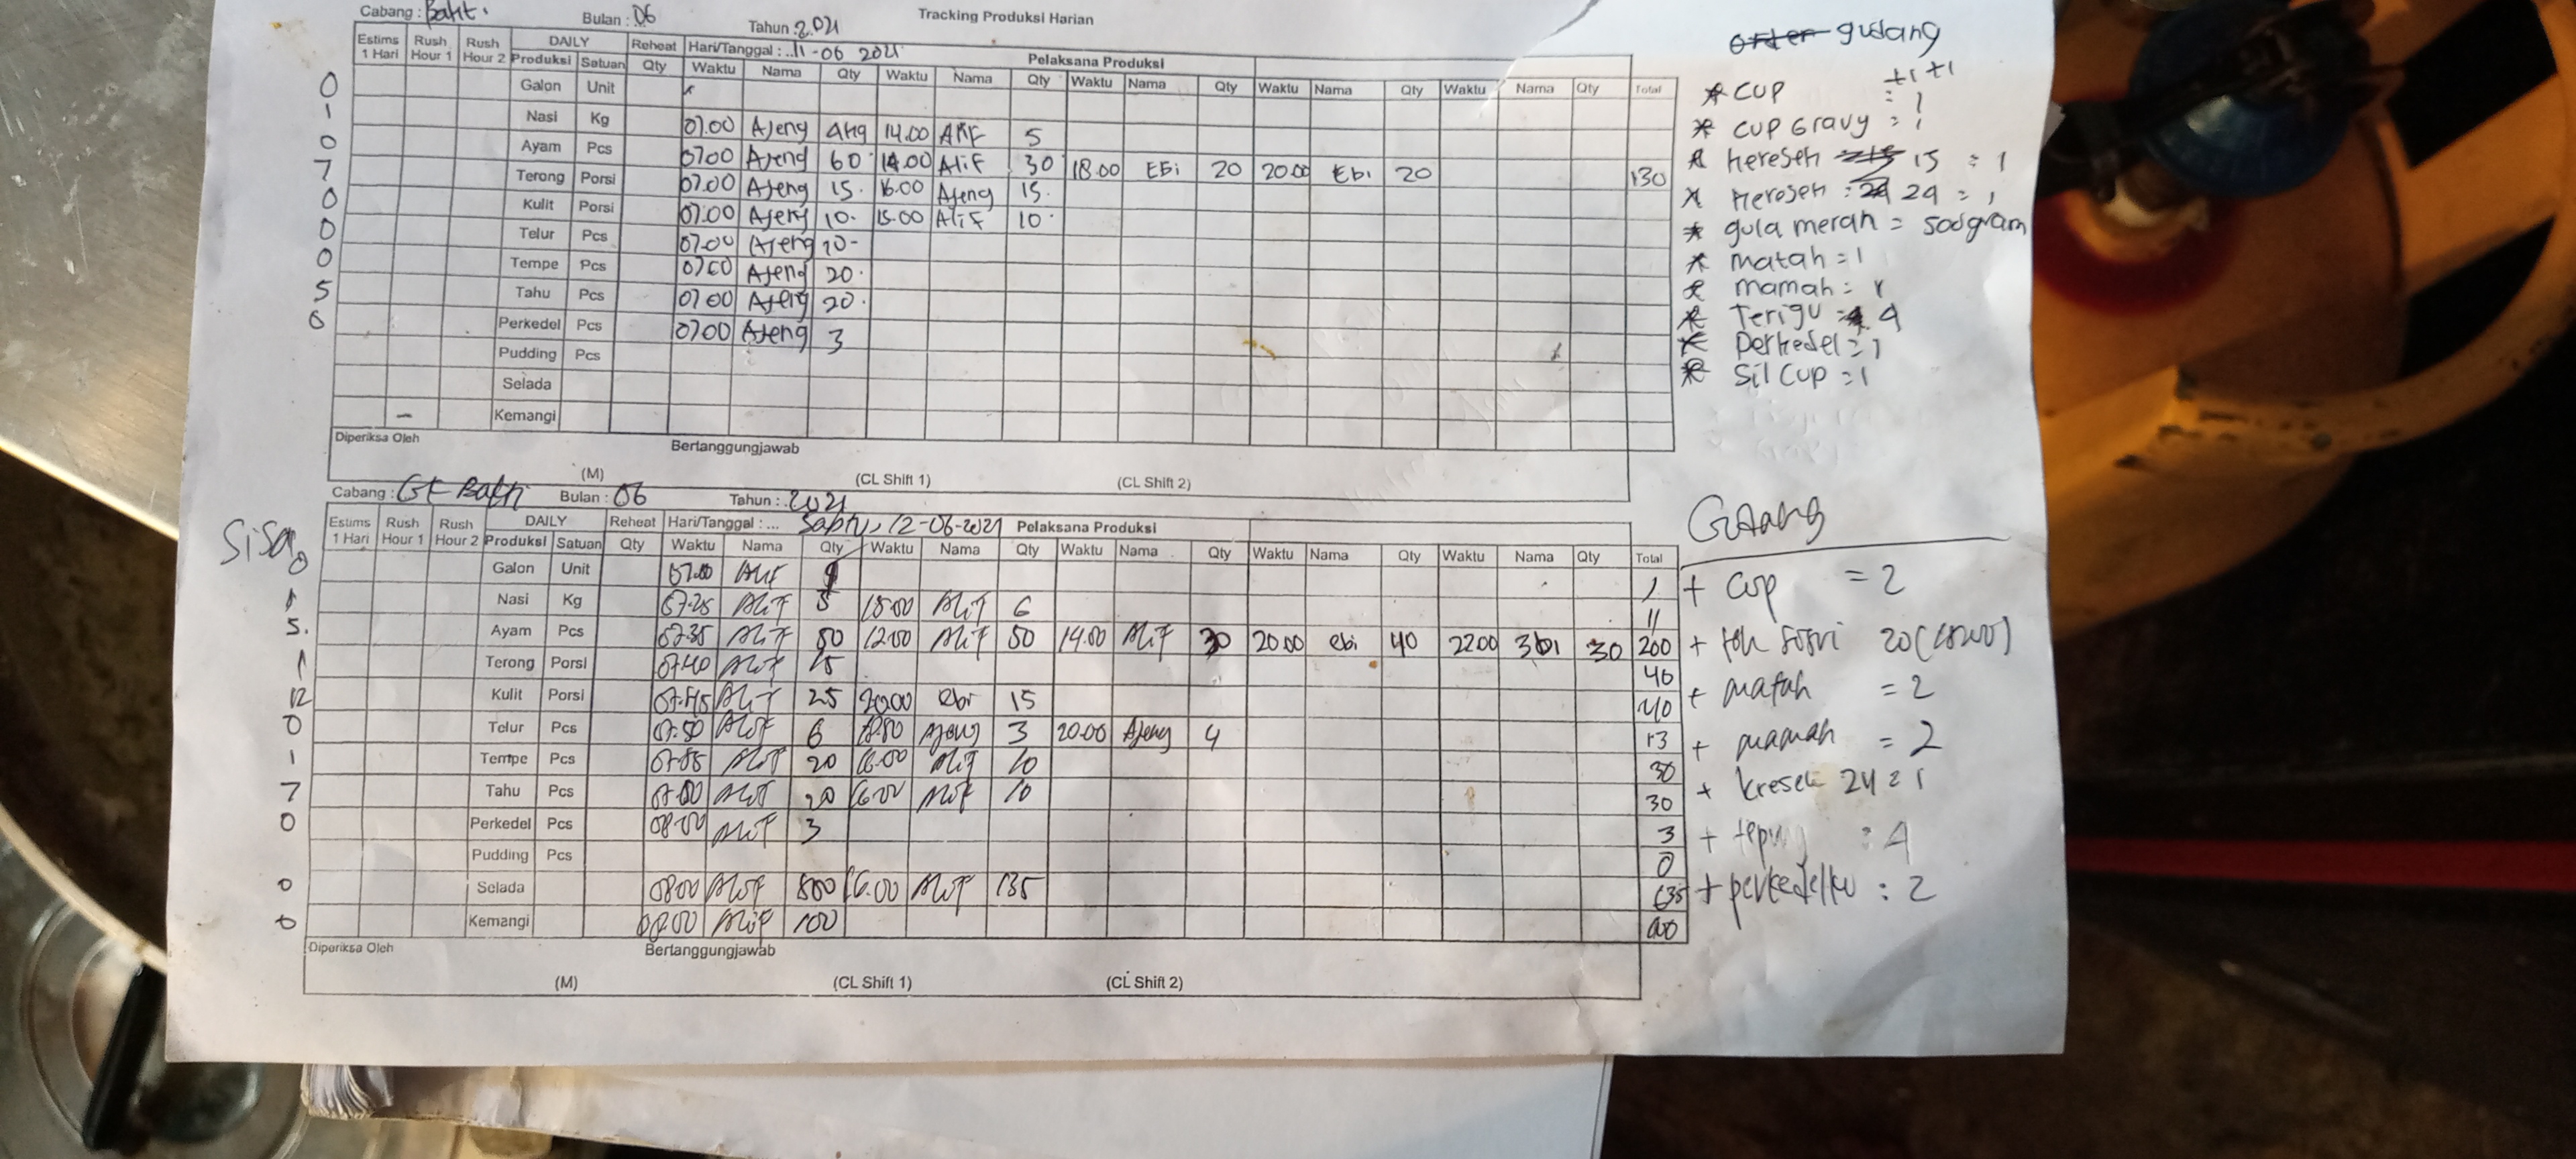 Tracking Produksi Harian
Cabang : Bakti. Bulan : 06 Tahun : 2021
Estims 1 Hari Rush Hour 1 Rush Hour 2 DAILY Reheat Hari/Tanggal : ..11-06 2021 Pelaksana Produksi
Produksi Satuan Qty Waktu Nama Qty Waktu Nama Qty Waktu Nama Qty Waktu Nama Qty Waktu Nama Qty Total
0 Galon Unit
1 Nasi Kg 07.00 Ajeng 4kg 14.00 Alif 5
0 Ayam Pcs 07.00 Ajeng 60 14.00 Alif 30 18.00 Ebi 20 20.00 Ebi 20 130
7 Terong Porsi 07.00 Ajeng 15. 16.00 Ajeng 15.
0 Kulit Porsi 07.00 Ajeng 10. 15.00 Alif 10.
0 Telur Pcs 07.00 Ajeng 10-
0 Tempe Pcs 07.00 Ajeng 20.
5 Tahu Pcs 07.00 Ajeng 20.
0 Perkedel Pcs 07.00 Ajeng 3
Pudding Pcs
Selada
Kemangi
Diperiksa Oleh Bertanggungjawab
(M) (CL Shift 1) (CL Shift 2)
order gudang
+1 +1
* CUP = 1
* CUP Gravy = 1
* Keresek 15 = 1
* Keresek : 24 = 1
* gula merah = 500gram
* matah = 1
* mamah = 1
* Terigu = 4
* Perkedel = 1
* Sil Cup = 1
Cabang : GF Bakti Bulan : 06 Tahun : 2021
Sisa
Estims 1 Hari Rush Hour 1 Rush Hour 2 DAILY Reheat Hari/Tanggal : ... Sabtu, 12-06-2021 Pelaksana Produksi
Produksi Satuan Qty Waktu Nama Qty Waktu Nama Qty Waktu Nama Qty Waktu Nama Qty Waktu Nama Qty Total
0 Galon Unit 07.00 Alif 1
1 Nasi Kg 07.25 Alif 5 15.00 Alif 6 11
5. Ayam Pcs 07.35 Alif 50 12.00 Alif 50 14.00 Alif 30 20.00 ebi 40 22.00 3bi 30 200
1 Terong Porsi 07.40 Alif 40
12 Kulit Porsi 07.45 Alif 25 20.00 ebi 15 40
0 Telur Pcs 07.50 Alif 6 Ajeng 3 20.00 Ajeng 4 13
1 Tempe Pcs 07.55 Alif 20 16.00 Alif 10 30
7 Tahu Pcs Alif 20 16.00 Alif 10 30
0 Perkedel Pcs 08.00 Alif 3 3
Pudding Pcs 0
0 Selada 08.00 Alif 500 16.00 Alif 135 635
0 Kemangi 08.00 Alif 100
Diperiksa Oleh Bertanggungjawab
(M) (CL Shift 1) (CL Shift 2)
Gudang
+ Cup = 2
+ 20
+ matah = 2
+ mamah = 2
+ kresek 24 = 1
+ tepung : 4
+ perkedelku : 2